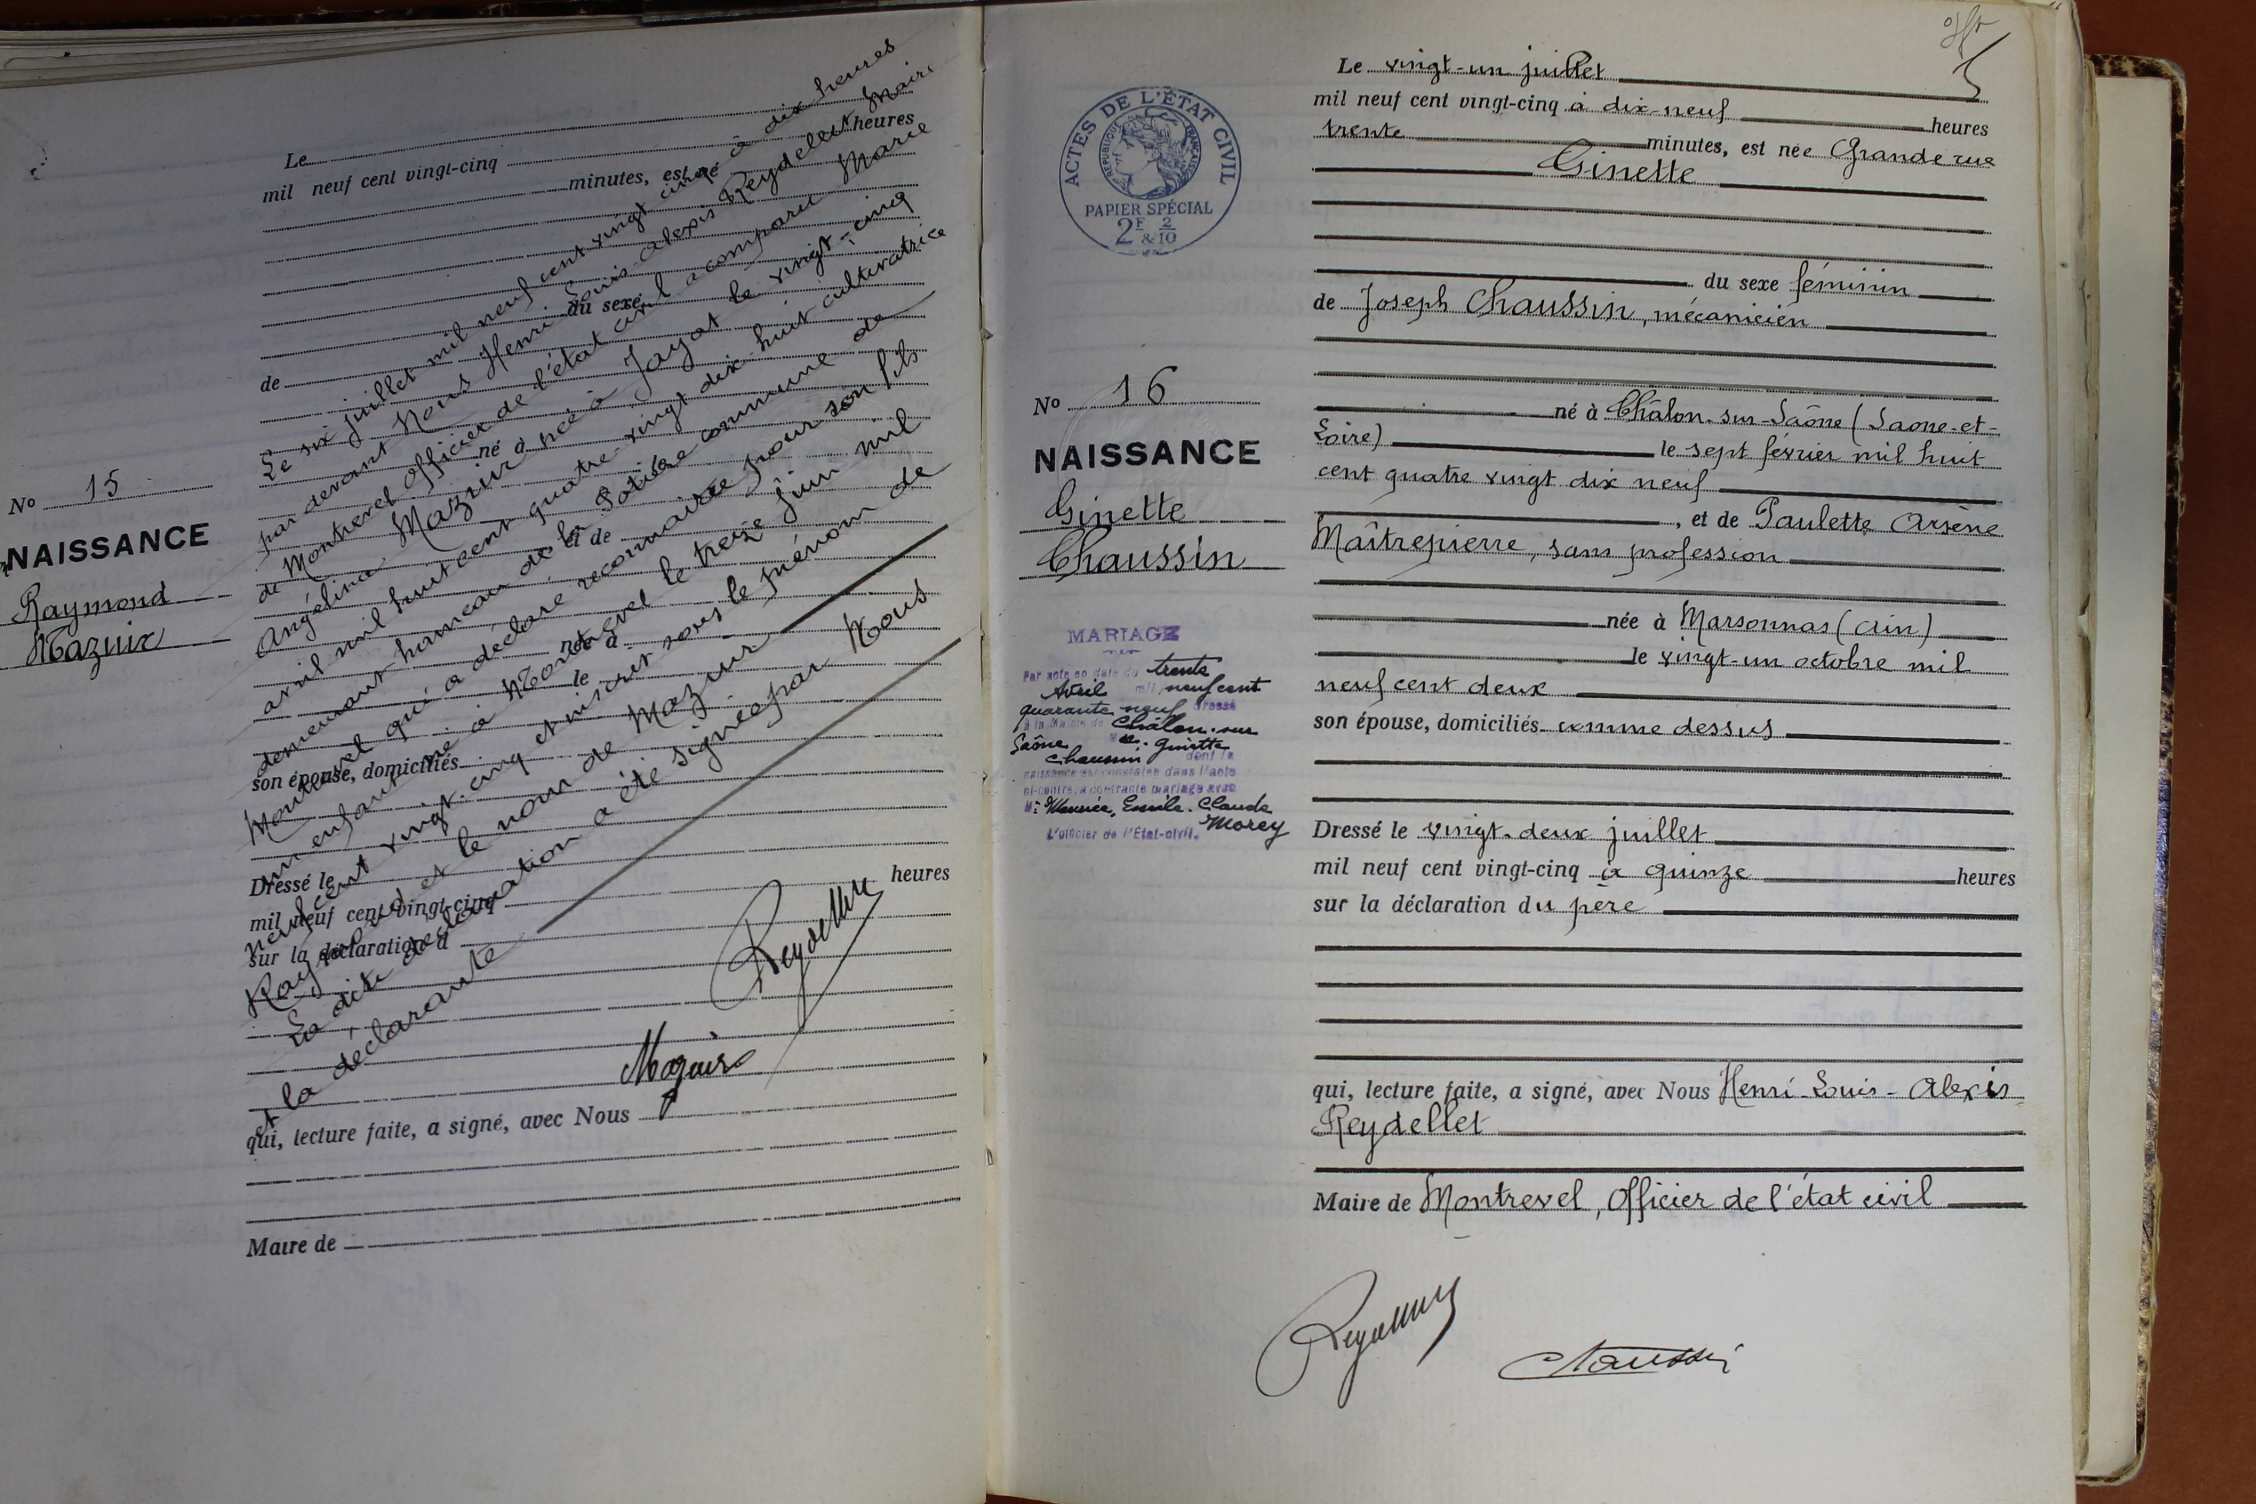 No 15
NAISSANCE
Raymond
Mazuir
Le
mil neuf cent vingt-cinq heures
minutes, est né
du sexe
de
né à
et de
née à
le
son épouse, domiciliés
Dressé le
mil neuf cent vingt-cinq heures
sur la déclaration d
qui, lecture faite, a signé, avec Nous
Maire de
Le six juillet mil neuf cent vingt cinq à dix heures
par devant Nous Henri Louis Alexis Reydellet Maire
de Montrevel officier de l'état civil a comparu Marie
Angélina Mazuir née à Jayat le vingt-cinq
avril mil huit cent quatre vingt dix huit cultivatrice
demeurant hameau de la commune de
Montrevel qui a déclaré reconnaître pour son fils
un enfant né à Montrevel le treize juin mil
neuf cent vingt-cinq et inscrit sous le prénom de
Raymond et le nom de Mazuir
La dite déclaration a été signée par Nous
et la déclarante
Reydellet
Mazuir
ACTES DE L'ÉTAT CIVIL
RÉPUBLIQUE FRANÇAISE
PAPIER SPÉCIAL
2F & 2/10
No 16
NAISSANCE
Ginette
Chaussin
MARIAGE
Par acte en date du trente
Avril mil neuf cent
quarante neuf dressé
à la Mairie de Châlon-sur
Saône Ginette
Chaussin dont la
naissance est constatée dans l'acte
ci-contre, a contracté mariage avec
Mr Maurice, Emile-Claude
Morey
L'officier de l'État-civil.
Le vingt-un juillet
mil neuf cent vingt-cinq à dix-neuf heures
trente minutes, est née Grande rue
Ginette
du sexe féminin
de Joseph Chaussin, mécanicien
né à Châlon-sur-Saône (Saone-et-
Loire) le sept février mil huit
cent quatre vingt dix neuf
, et de Paulette Arsène
Maîtrepierre, sans profession
née à Marsonnas (Ain)
le vingt-un octobre mil
neuf cent deux
son épouse, domiciliés comme dessus
Dressé le vingt-deux juillet
mil neuf cent vingt-cinq à quinze heures
sur la déclaration du père
qui, lecture faite, a signé, avec Nous Henri-Louis-Alexis
Reydellet
Maire de Montrevel, Officier de l'état civil
Reydellet
Chaussin